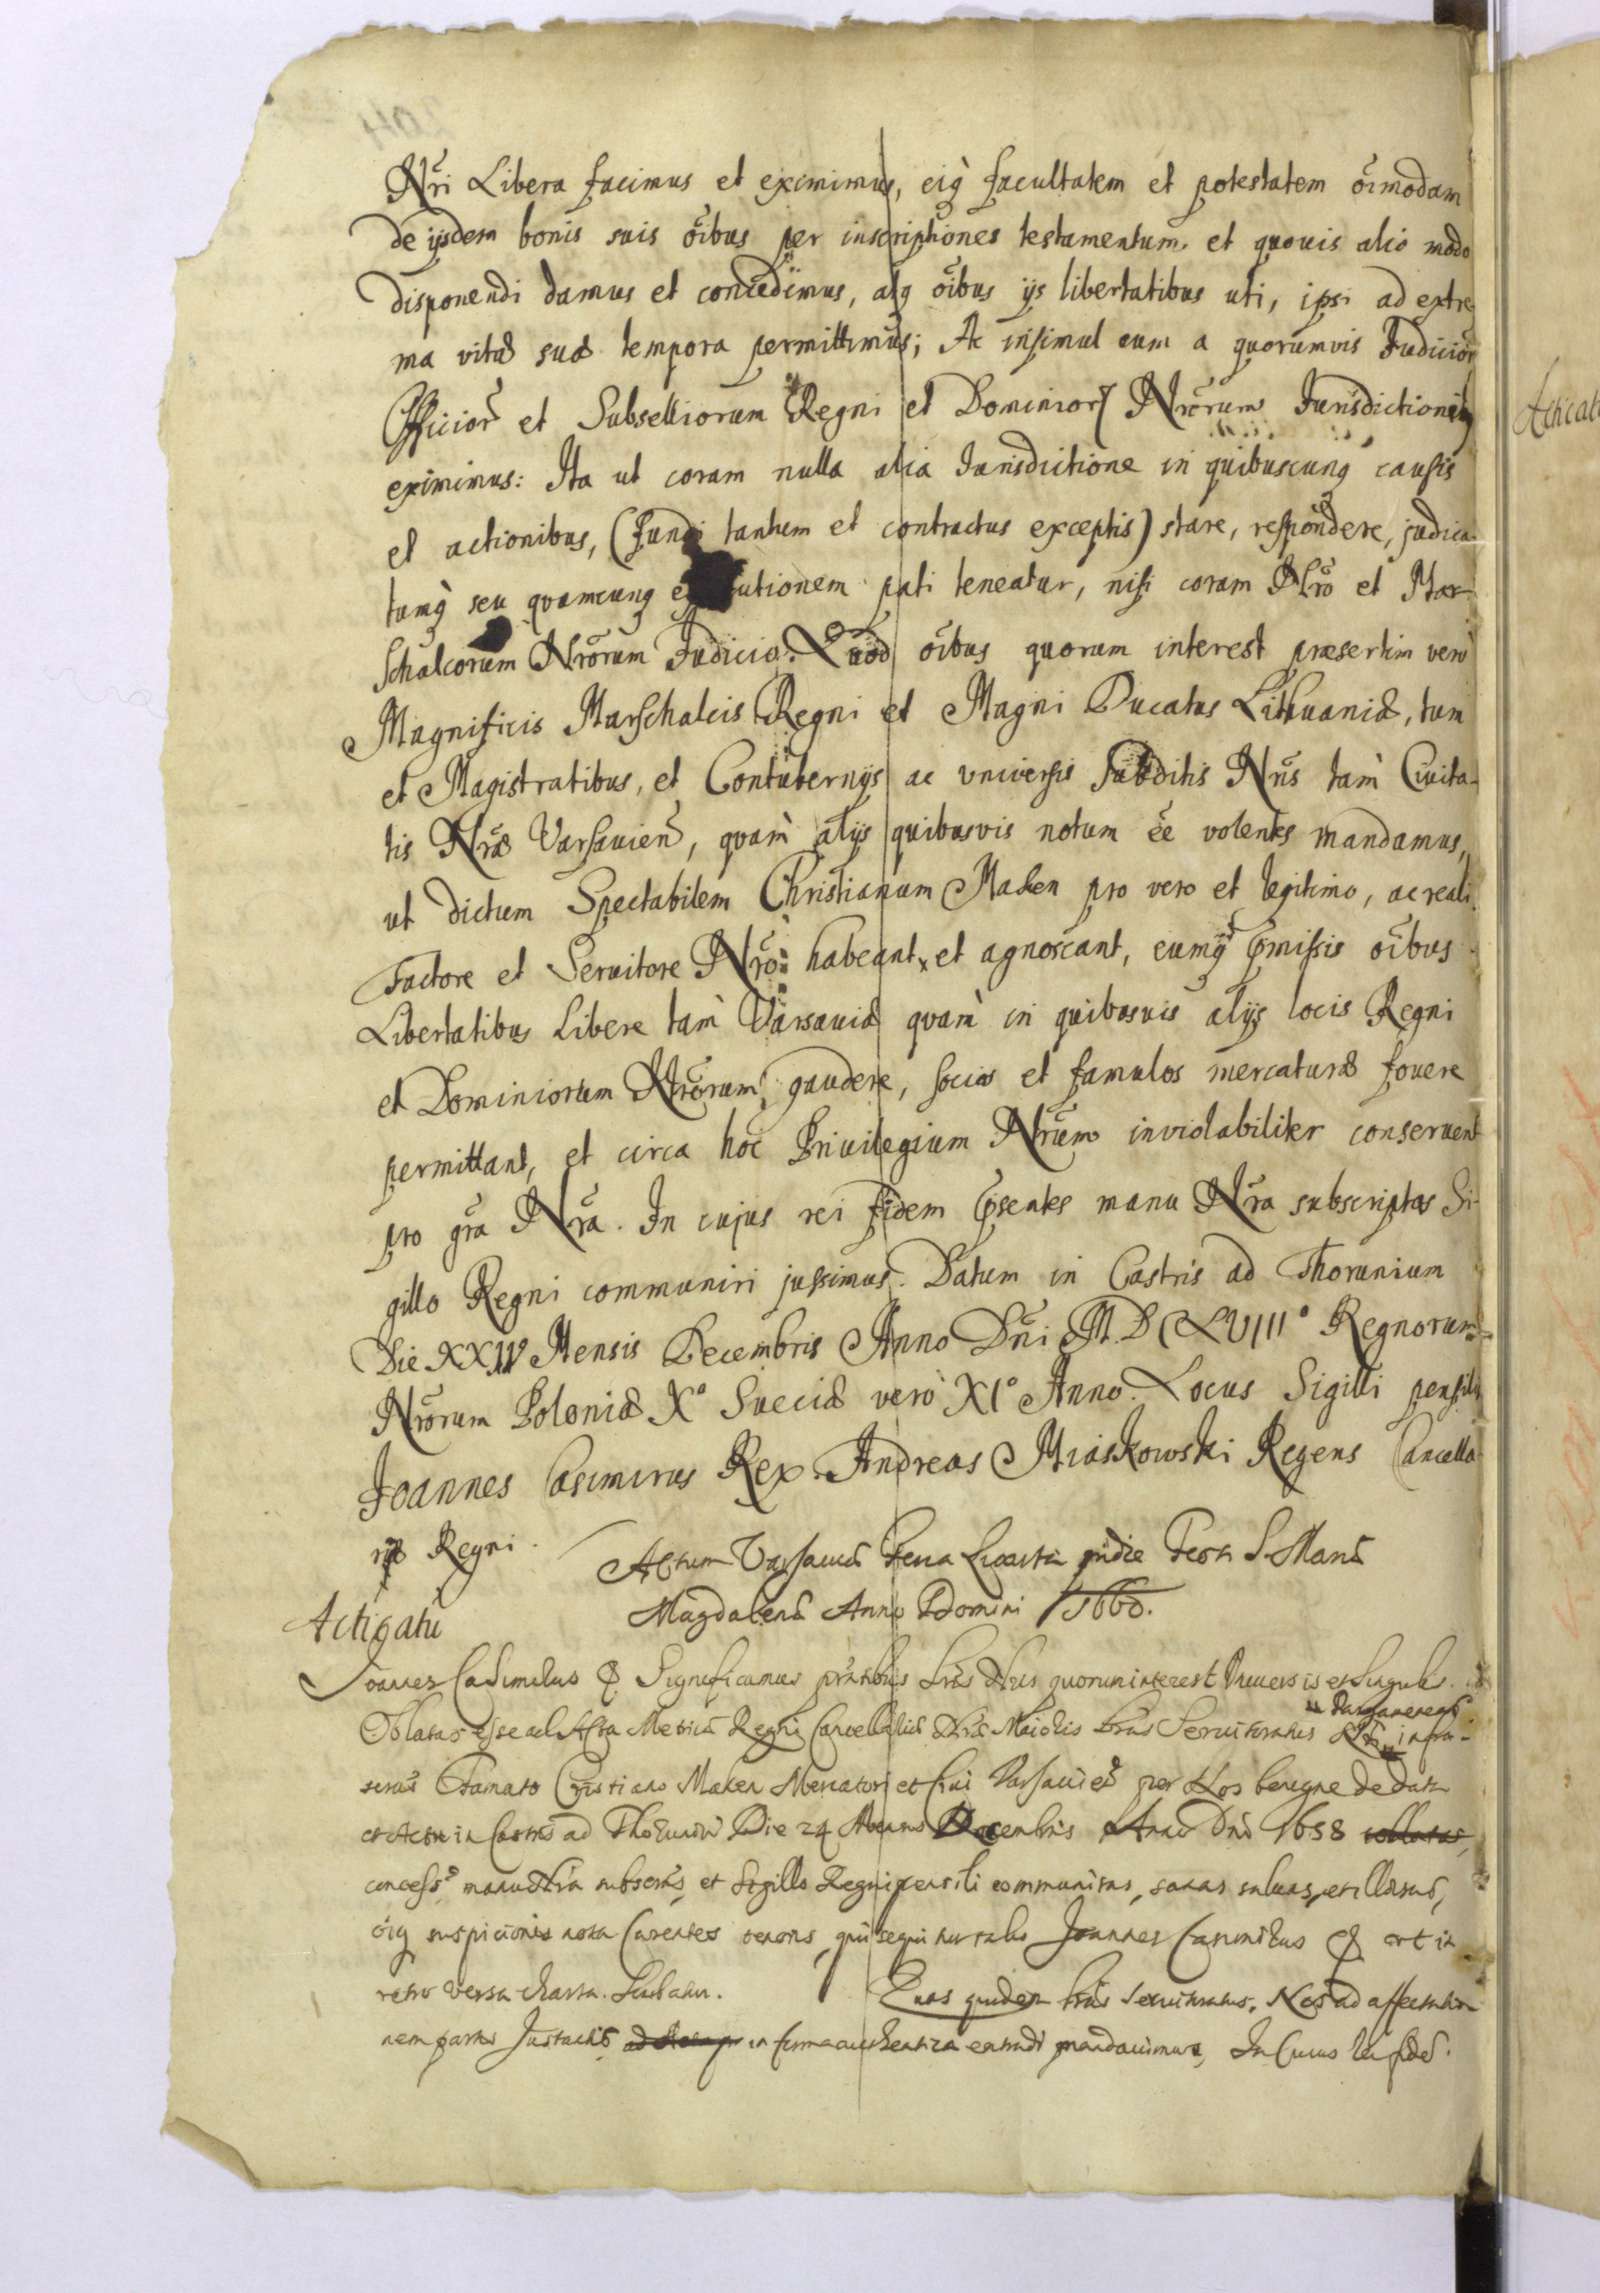 Nr̃i Libera facimus et eximimus, eiq̀ facultatem et potestatem oĩmodam
de ijsdem bonis suis oĩbus per inscriptiones testamentum et quouis alio modo
disponendi damus et concedimus, atq oĩbus ijs libertatibus uti, ipsi ad extre-
ma vitæ suæ tempora permittimus; Ac insimul eum a quorumvis Judicior̃
Officior̃ et Subselliorum Regni et Dominior Nr̃orum Jurisdictionib
eximimus: Ita ut coram nulla alia Jurisdictione in quibuscunq causis
et actionibus, (fundi tantum et contractus exceptis) stare, respondere, judica-
tumq̀ seu quamcunq executionem pati teneatur, nisi coram Nr̃o et Mar-
schalcorum Nr̃orum Judicio. Quod oĩbus quorum interest præsertim verò
Magnificis Marschalcis Regni et Magni Ducatus Lithuaniæ, tum
et Magistratibus, et Contubernijs ac vniversis Subditis Nr̃is tam̀ Ciuita-
tis Nr̃æ Varsauien̄, quam̀ alijs quibusvis notum eẽ volentes mandamus,
ut dictum Spectabilem Christianum Maken pro vero et legitimo, ac reali
Factore et Seruitore Nr̃o habeant et agnoscant, eumq̀ p̃missis oĩbus
Libertatibus libere tam̀ Varsauiæ quam̀ in quibusuis alijs locis Regni
et Dominiorum Nr̃orum gaudere, socios et famulos mercaturæ fouere
permittant, et circa hoc Priuilegium Nr̃um inviolabiliter conseruent
pro gr̃a Nr̃a. In cujus rei fidem p̃sentes manu Nr̃a subscriptas Si-
gillo Regni communiri jussimus. Datum in Castris ad Thorunium
Die XXIV Mensis Decembris Anno Dn̄i M.D C LVIII° Regnorum
Nr̃orum Poloniæ X° Sueciæ verò XI° Anno. Locus Sigilli pensilis
Joannes Casimirus Rex. Andreas Miaskowski Regens Cancella-
riæ Regni.
Actum Varsauiæ Feria Quarta pridie Festi S. Mariæ
Magdalenæ Anno Domini 1660.
Acticatū
Joannes Casimirus Significamus quorum interest Vniuersis et Singulis.
Oblatas esse ad Acta Metrices Regni Cancellariæ Seruitoratus infra-
Famato Cristiano Maken Mercatori et Ciui Varsauieñ per Nos benigne de data
et Actu in Castris ad Thoruniū Die 24 Mensis Decembris Anno Dni 1658 collatas
concess manu Nr̃a subscriptas et Sigillo Regni pensili communitas, sanas saluas et illæsas,
oĩq suspicionis nota carentes tenoris qui sequitur talis Joannes Casimirus ut in
retro versa charta. Scribatur. Quas quidem seruitoratus. Nos ad affectatio-
nem partis in forma authentica extradi mandauimus, In cuius rei fidē.